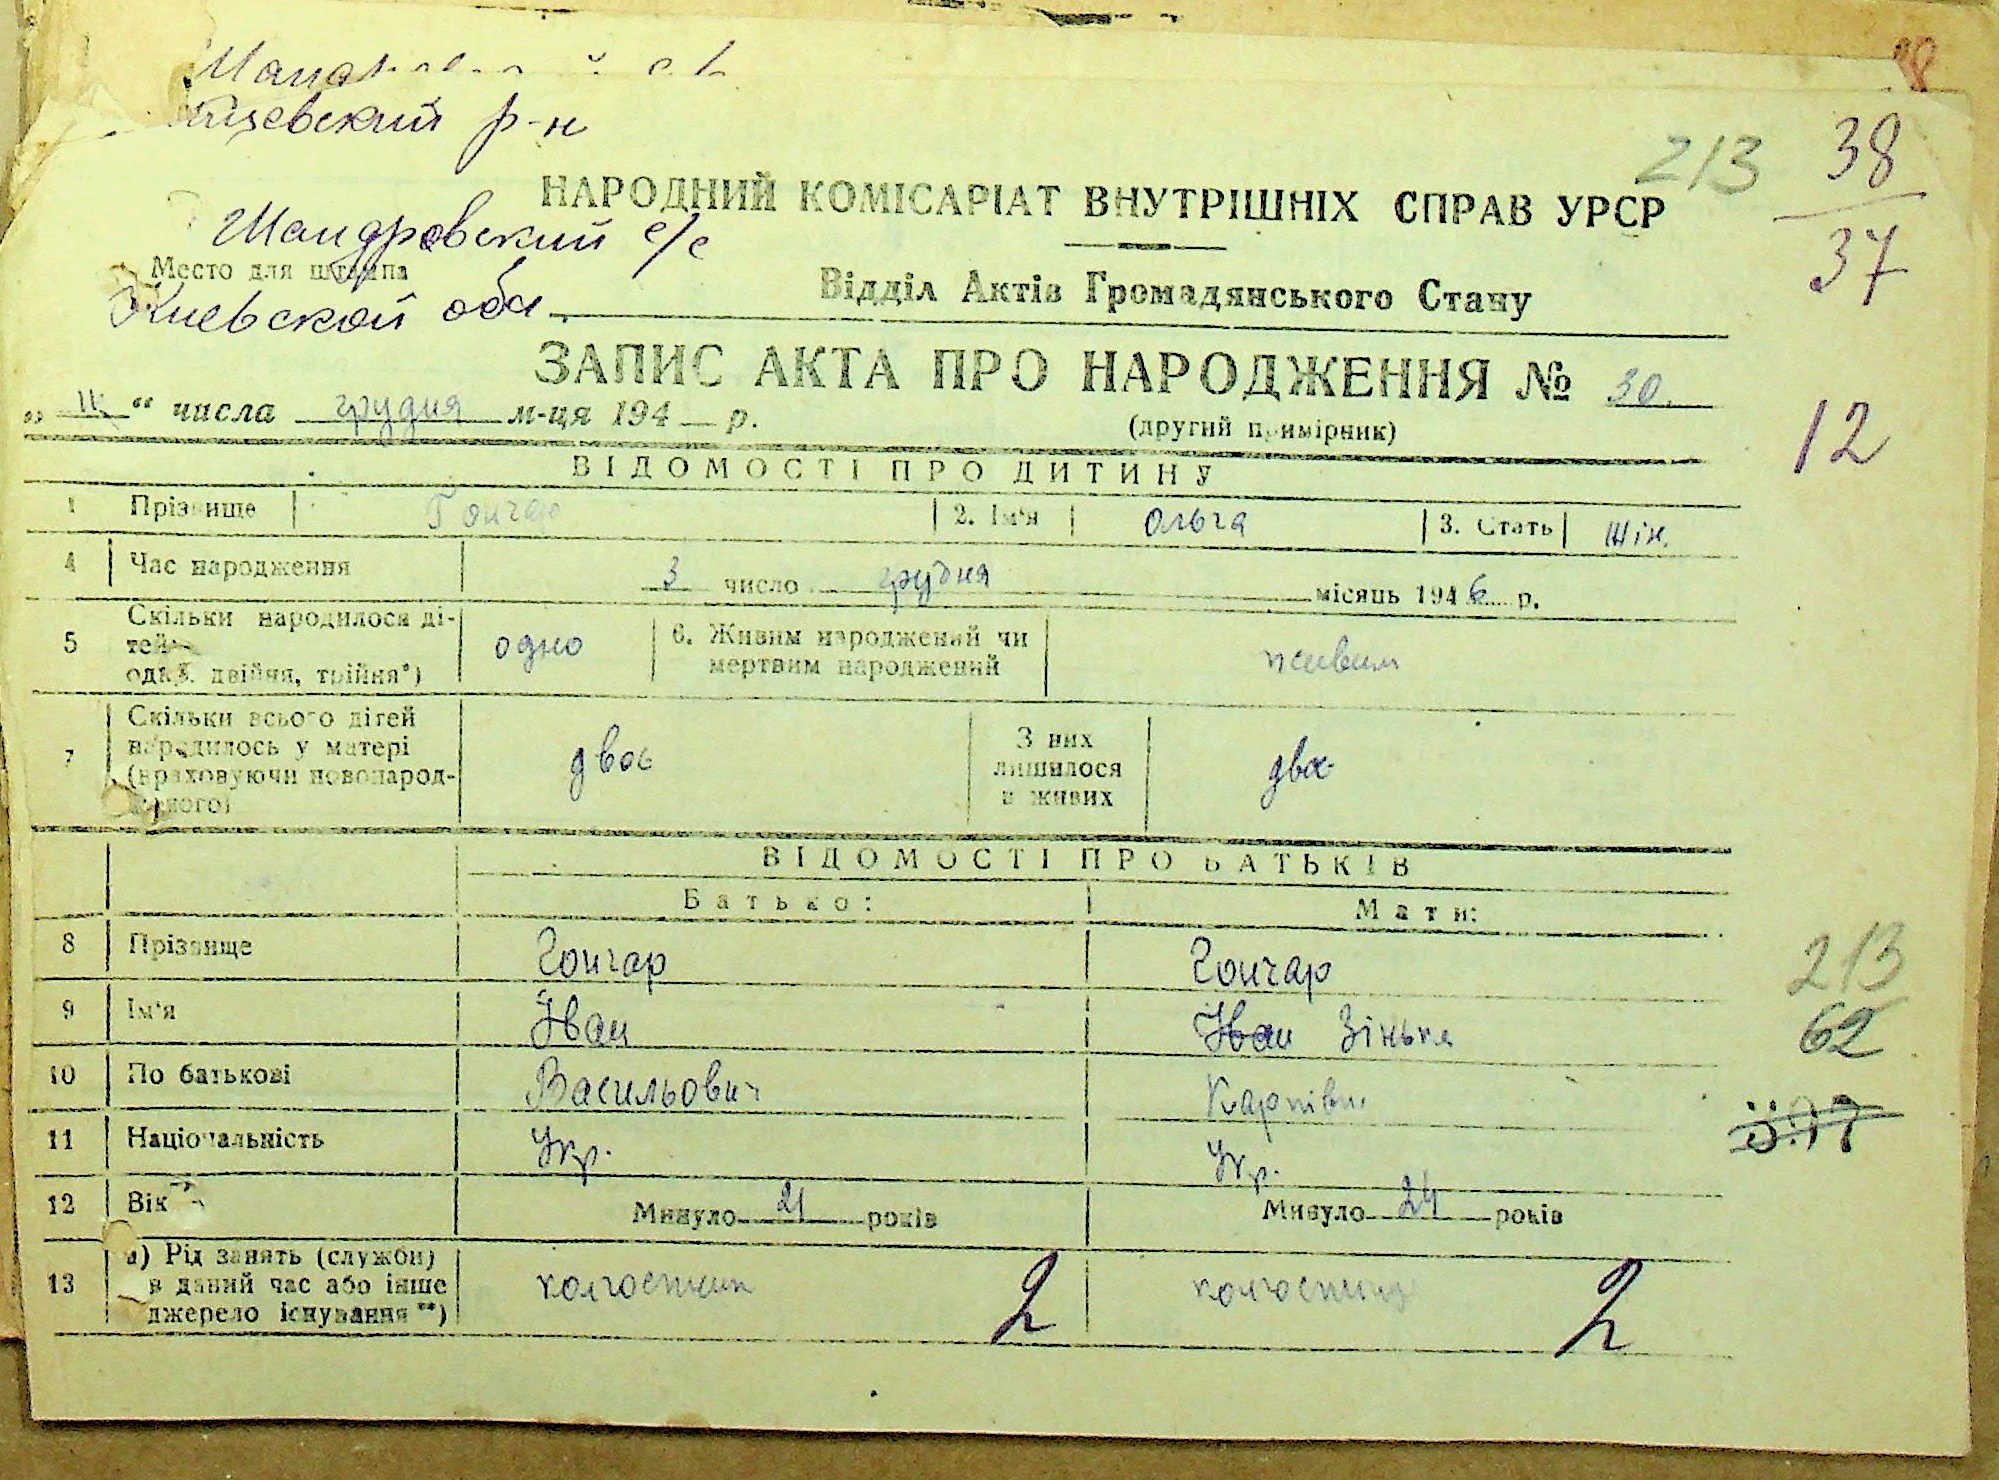 р-н
38
213
37
НАРОДНИЙ КОМІСАРІАТ ВНУТРІШНІХ СПРАВ УРСР
Шандровский с/с
Место для штампа
Киевской обл.
Відділ Актів Громадянського Стану
ЗАПИС АКТА ПРО НАРОДЖЕННЯ № 30.
„ “ числа грудня м-ця 194 р.
(другий примірник)
12
ВІДОМОСТІ ПРО ДИТИНУ
1 Прізвище Гончар 2. Ім'я Ольга 3. Стать Жін.
4 Час народження 3 число грудня місяць 1946 р.
5 Скільки народилося ді-
тей:
одна, двійня, трійня*)
одно
6. Живим народжений чи
мертвим народжений
живим
7 Скільки всього дітей
народилось у матері
(враховуючи новонарод-
женого)
двоє
З них
лишилося
в живих
двоє
ВІДОМОСТІ ПРО БАТЬКІВ
Батько: Мати:
8 Прізвище Гончар Гончар
213
9 Ім'я Іван Іван Зінька
62
10 По батькові Васильович Карпівн
11 Національність Укр. Укр.
12 Вік Минуло 21 років Минуло 24 років
13 а) Рід занять (служби)
в даний час або інше
джерело існування **)
колгоспник 2 колгоспниця 2